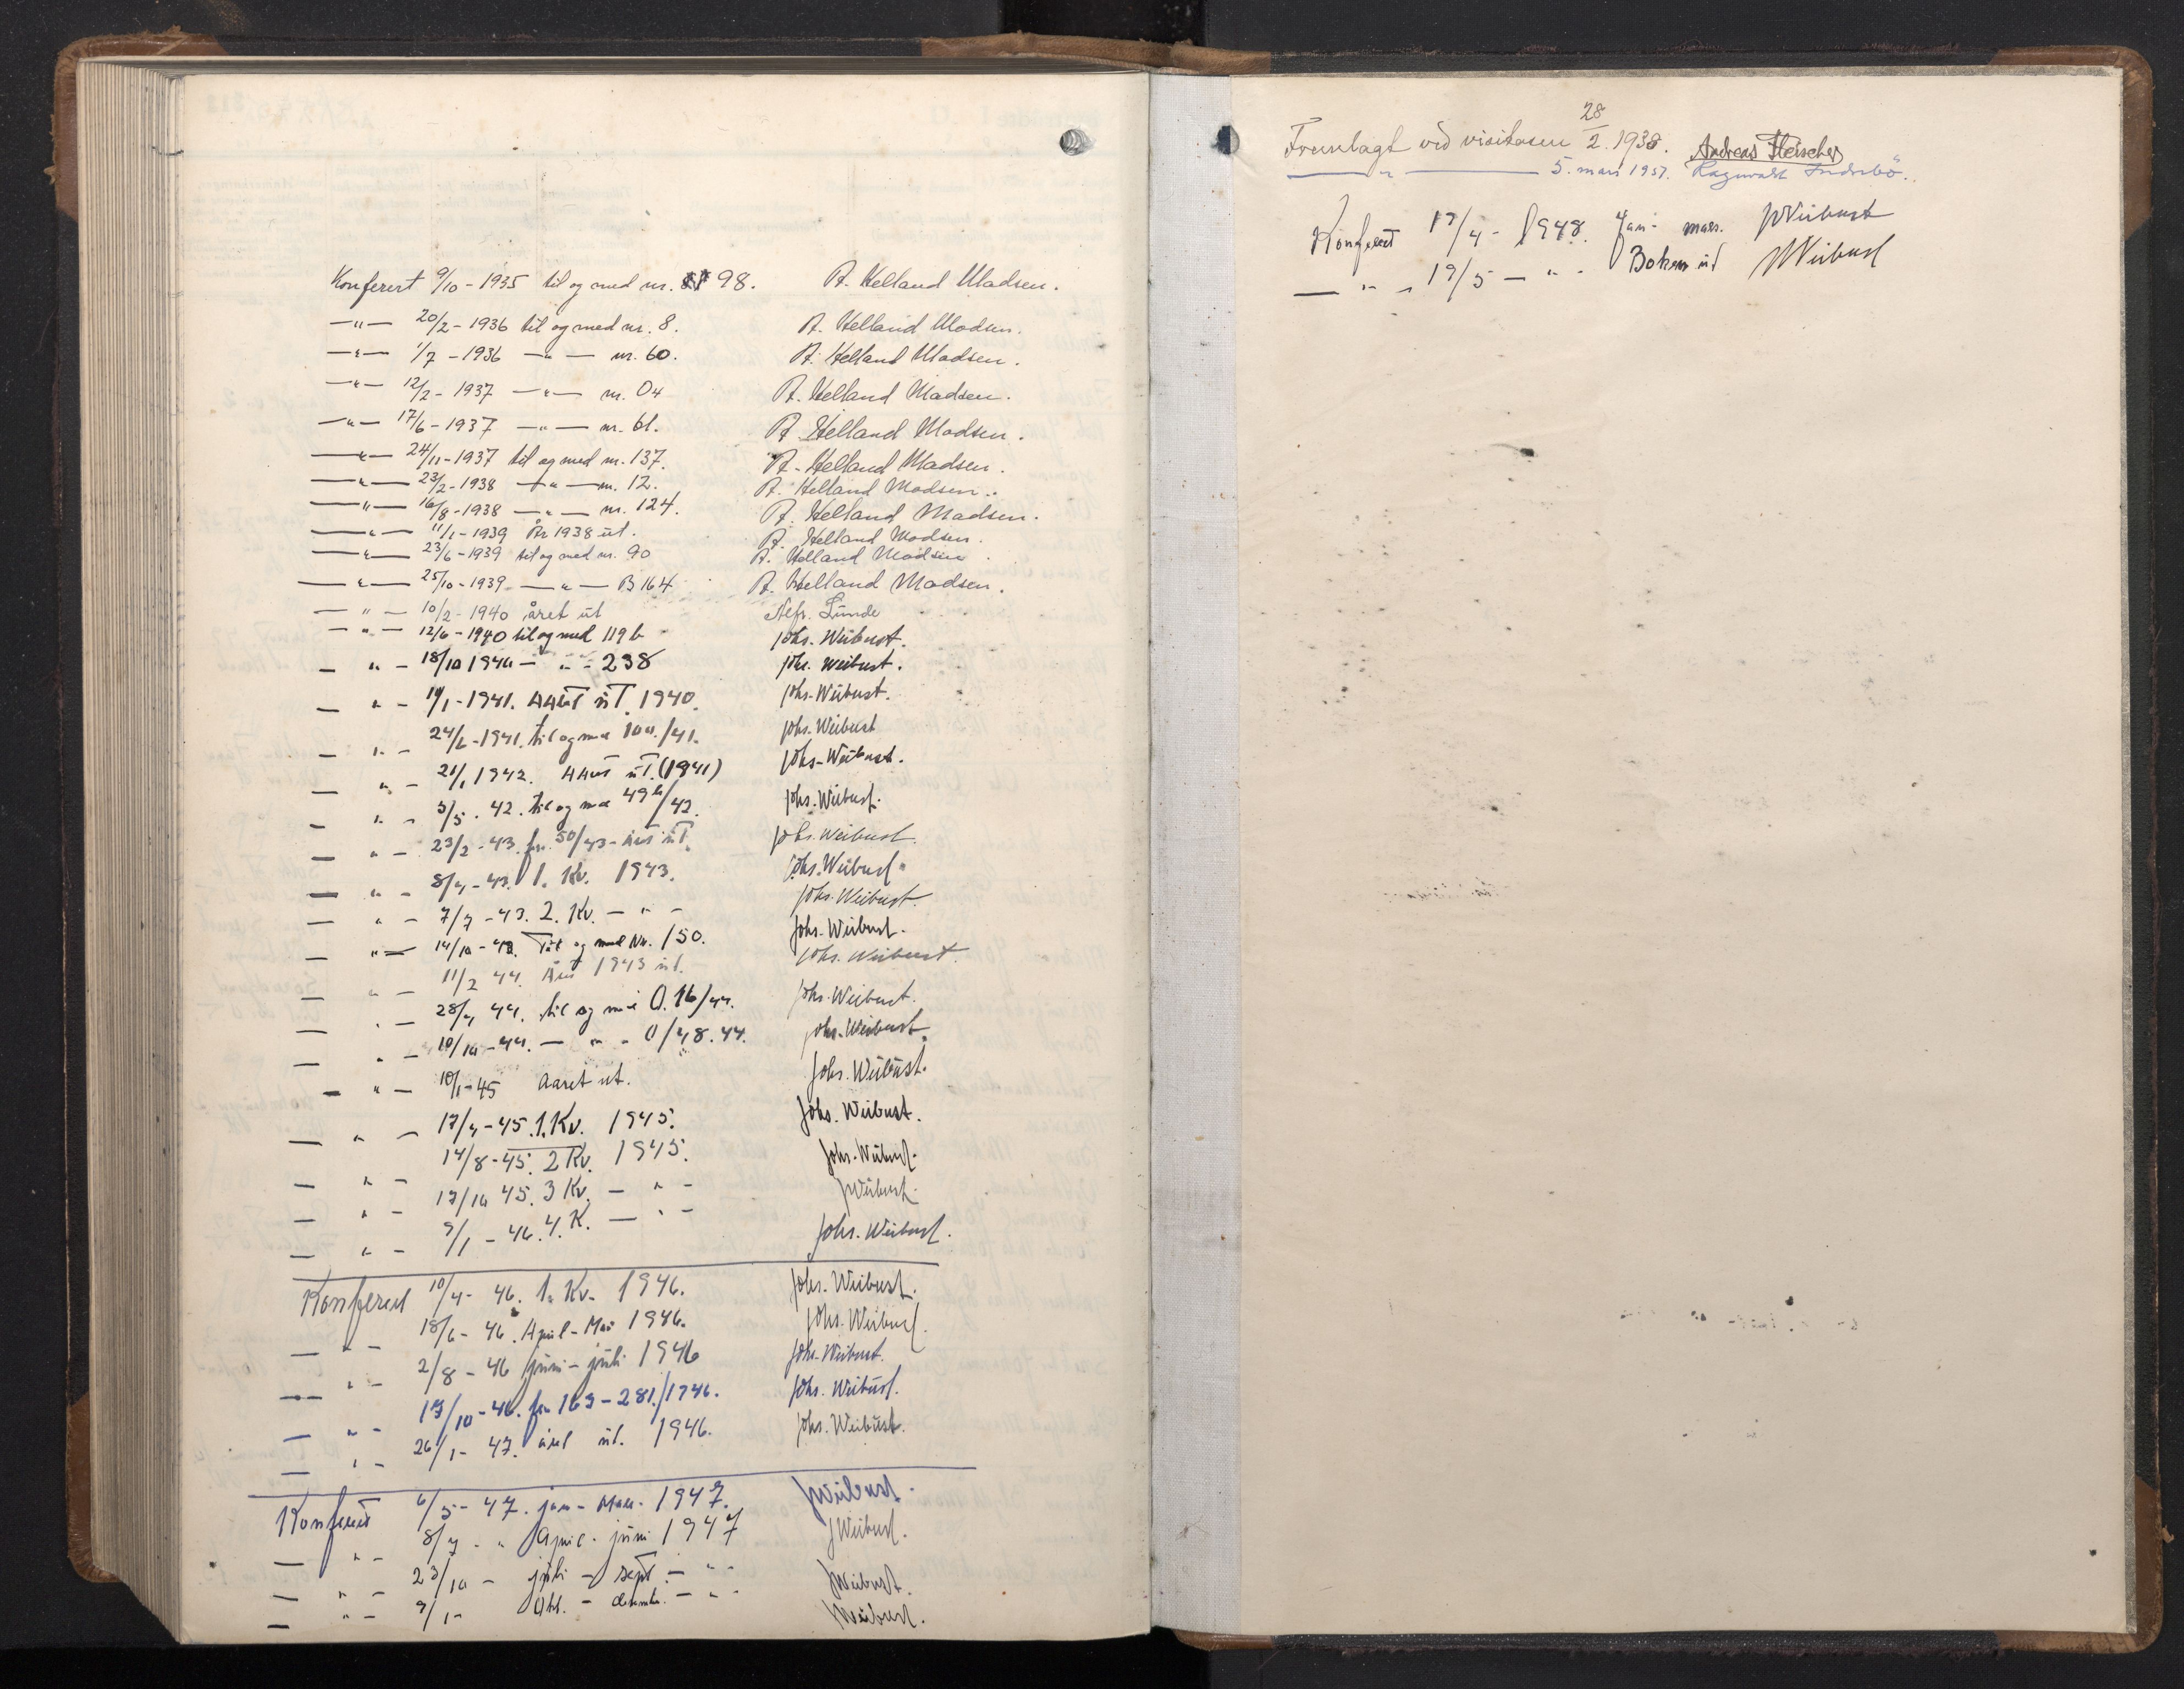 Konferert 9/10 - 1935 til og med nr. 98. A. Helland Madsen.
—"— 20/2 - 1936 til og med nr. 8. A. Helland Madsen.
—"— 1/7 - 1936 —"— nr. 60. A. Helland Madsen.
—"— 12/2 - 1937 —"— nr. 04 A. Helland Madsen.
—"— 17/6 - 1937 —"— nr. 61. A. Helland Madsen.
—"— 24/11 - 1937 til og med nr. 137. A. Helland Madsen.
—"— 23/2 - 1938 —"— nr. 12. A. Helland Madsen.
—"— 16/8 - 1938 —"— nr. 124. A. Helland Madsen.
—"— 11/1 - 1939 År 1938 ut. A. Helland Madsen.
—"— 23/6 - 1939 til og med nr. 90 A. Helland Madsen
—"— 25/10 - 1939 —"— B 164 A. Helland Madsen.
— " — 10/2 - 1940 året ut Lunde
— " — 12/6 - 1940 til og med 119 b Johs. Weibust.
— " — 18/10 1940 — " - 238 Johs. Weibust.
— " — 1/1 - 1941. ut 1940. Johs. Weibust.
— " — 24/6 - 1941. til og med /41. Johs. Weibust
— " — 21/1 1942. ut. (1941) Johs. Weibust.
— " - 5/5. 42. til og med 49 b/42. Johs. Weibust.
— " — 23/2 - 43. fra 50/43 - året ut. Johs. Weibust.
— " - 8/4 - 43. 1. Kv. 1943. Johs. Weibust.
— " — 7/7 - 43. 2. Kv. — " - Johs. Weibust.
— " — 14/10 - 43. Til og med Nr. 150. Johs. Weibust.
— " — 11/2 44. Året 1943 ut. Johs. Weibust.
— " — 28/4 44. til og med O. 16/44. Johs. Weibust.
— " — 10/10 - 44. — " - O/48. 44. Johs. Weibust.
— " — 10/1 - 45 Aaret ut. Johs. Weibust.
— " — 17/4 - 45. 1. Kv. 1945. Johs. Weibust.
— " — 14/8 - 45. 2 Kv. 1945. Johs. Weibust.
— " - 17/10 45. 3 Kv. — " - J Weibust.
— " - 9/1 - 46. 4. K. — " - Johs. Weibust.
Konferert 10/4 - 46. 1. Kv. 1946. Johs. Weibust.
— " - 18/6 - 46. April - Mai 1946. Johs. Weibust.
— " - 2/8 - 46 juni - juli 1946 Johs. Weibust.
— " - 17/10 - 46. fra 163 - 281./1946. Johs. Weibust.
— " - 26/1 - 47. året ut. 1946. Johs. Weibust.
Konferert 6/5 - 47. jan - Mars - 1947. J Weibust.
— " - 8/7 - " April - juni 1947 J Weibust.
— " - 23/10 - juli - sept. — " - J Weibust.
— " - 9/1 - Okt. - desember. — " - J Weibust.
Fremlagt ved visitasen 28/2. 1938. Andreas Fleischer
— " — 5. mars 1957. Ragnvald Indrebö.
Konferert 17/4 - 1948. Jan - mars. J Weibust
— " - 19/5 — " - Boken ut J Weibust